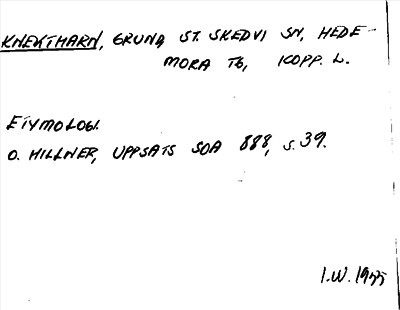 KNEKTHARN, GRUND, ST. SKEDVI SN, HEDE-
MORA TG, KOPP. L.
ETYMOLOGI.
O. HILLNER, UPPSATS SOA 888, S. 39.
I.W. 1955